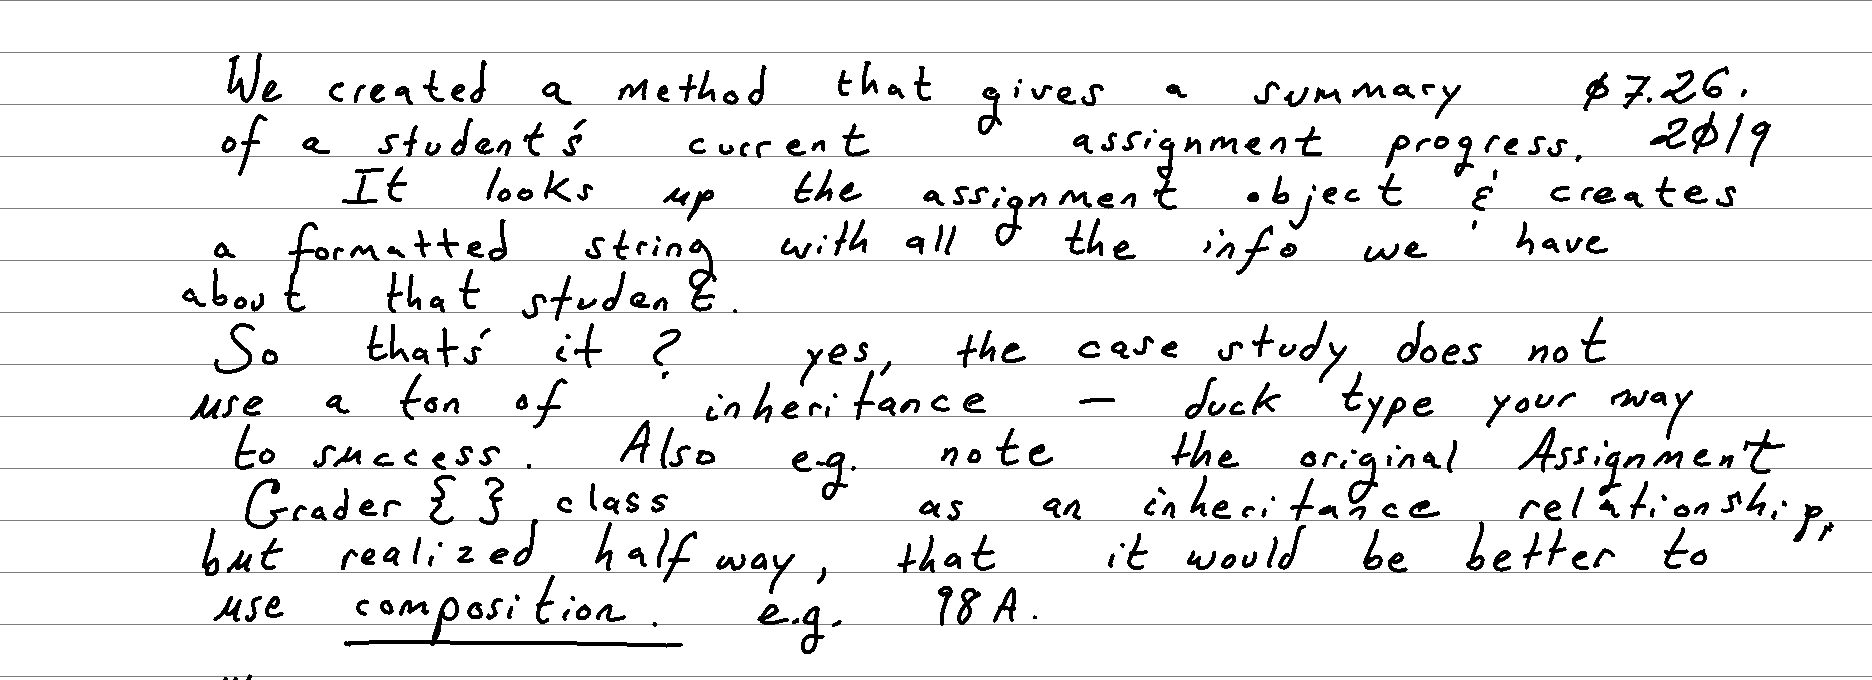 We created a method that gives a summary 07.26.
of a student's current assignment progress. 2019
It looks up the assignment object & creates
a formatted string with all the info we have
about that student.
So that's it? yes, the case study does not
use a ton of inheritance — duck type your way
to success. Also e.g. note the original Assignment
Grader {} class as an inheritance relationship,
but realized half way, that it would be better to
use composition. e.g. 98A.